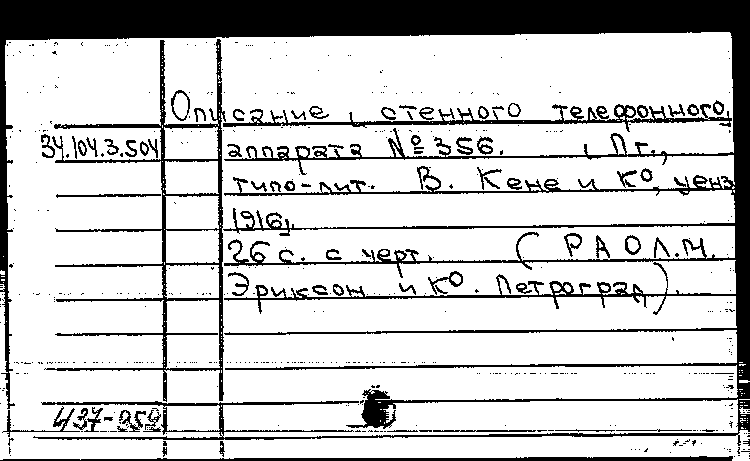 Описание стенного телефонного
34.104.3.504
аппарата № 356. Пг.,
типо-лит. В. Кене и К⁰, ценз.
1916,
26 с. с черт. (РАО Л.М.
Эриксон и К⁰. Петроград).
437-959